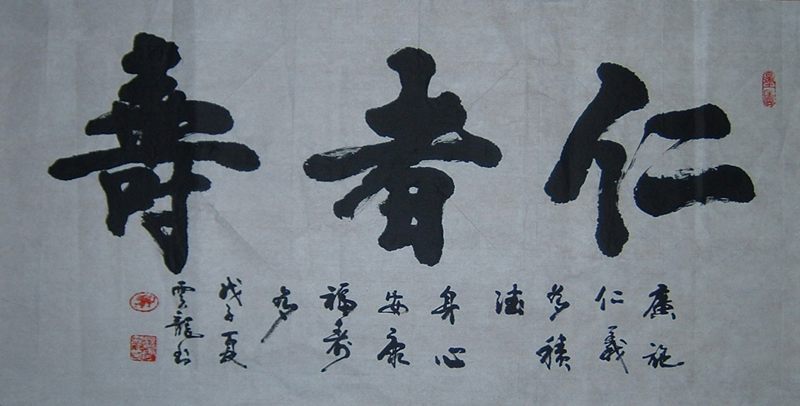 仁者壽
廣施
仁義
多積
德
身心
安康
福壽
多
戊子夏
雲龍書